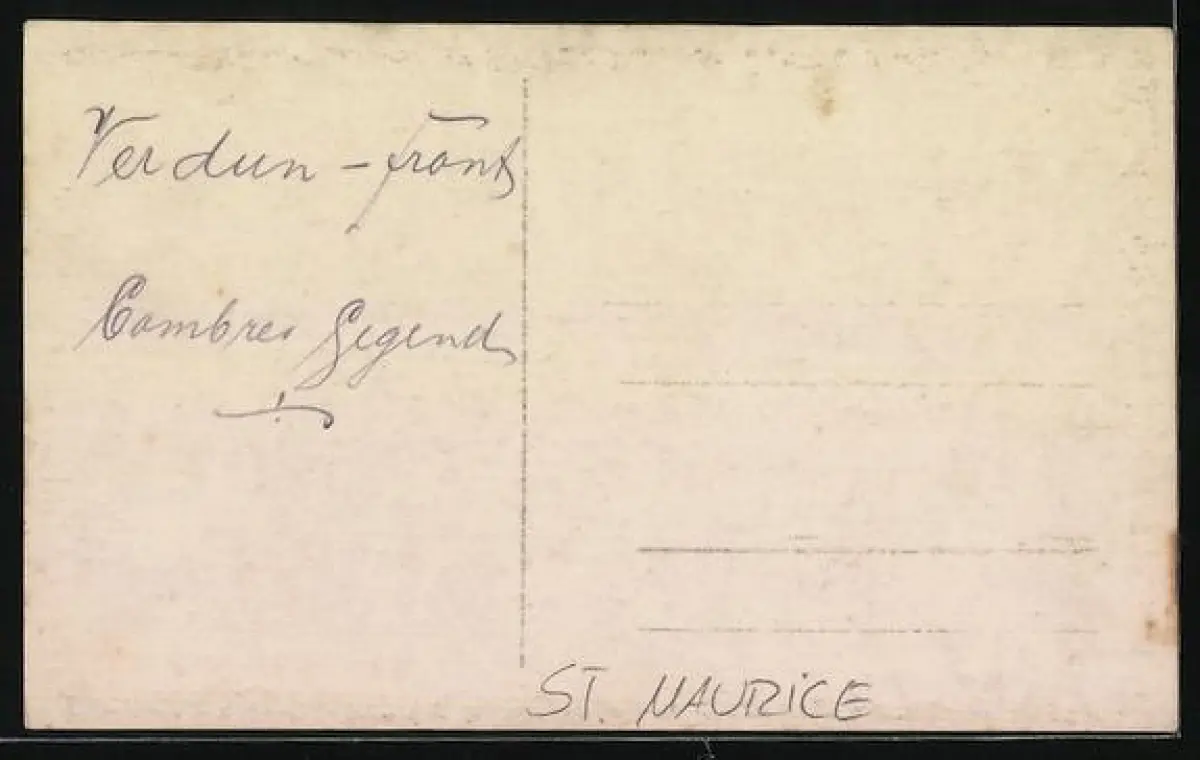 Verdun - front
Combres Gegend
ST. MAURICE